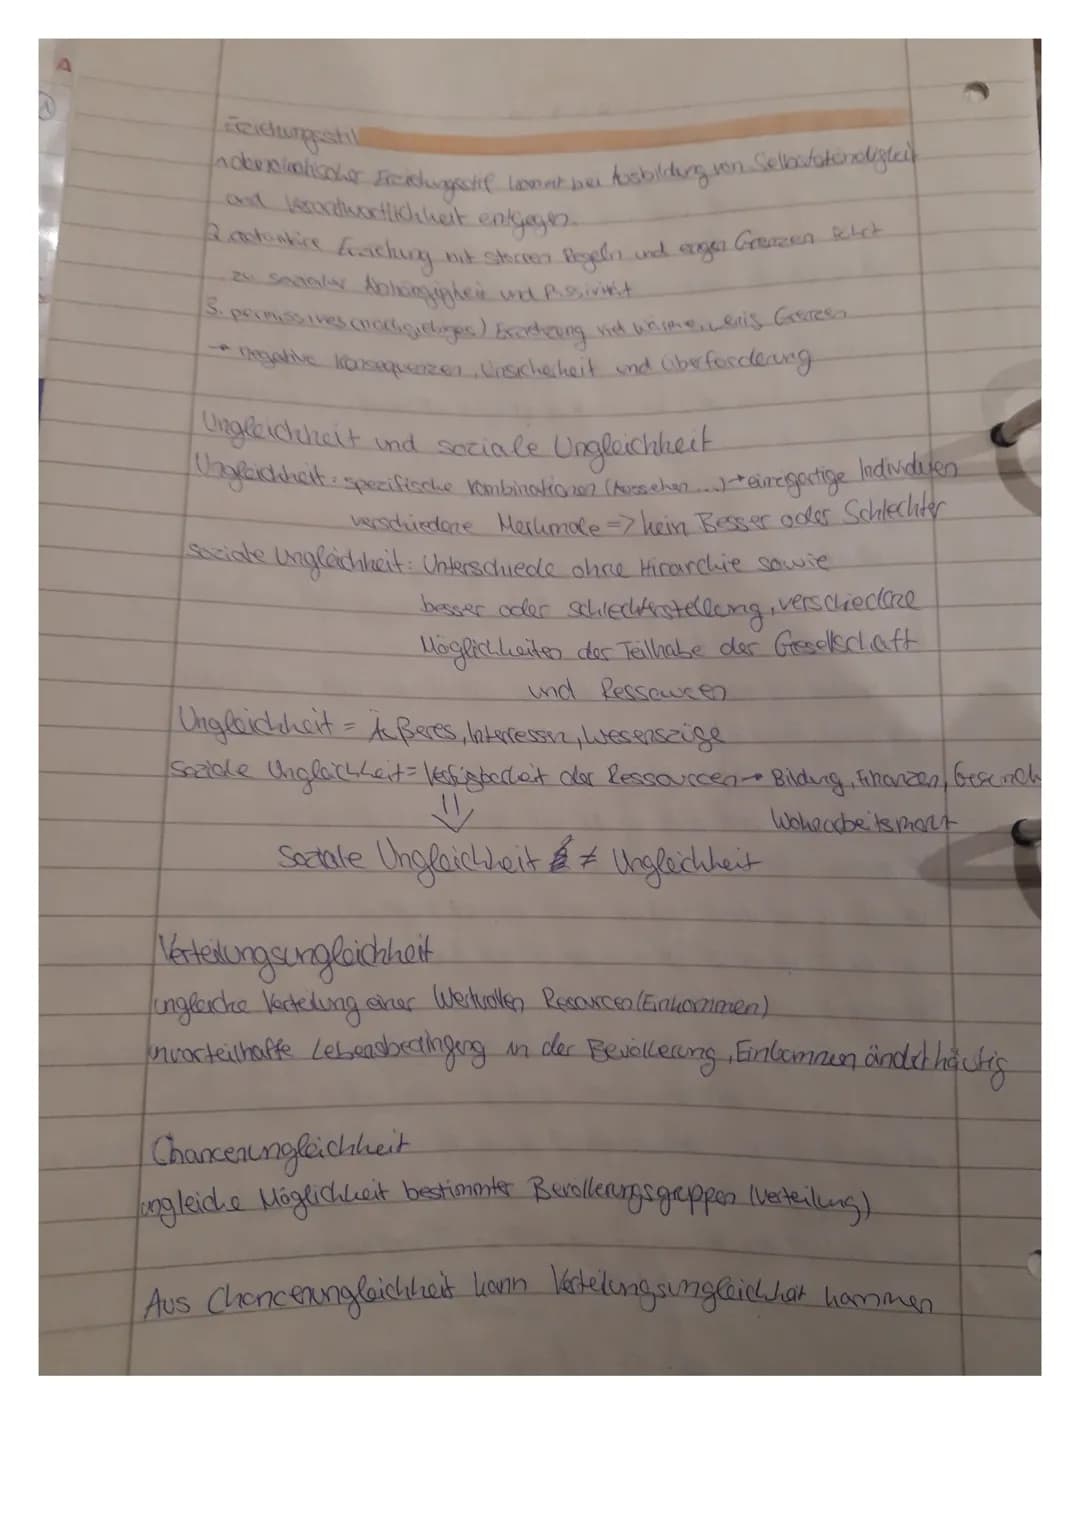 Erziehungsstil
1. demokratischer Erziehungsstil kommt bei Ausbildung von Selbstständigkeit
und Verantwortlichkeit entgegen.
2. autoritäre Erziehung mit starren Regeln und engen Grenzen führt
zu sozialer Abhängigkeit und Passivität
3. permissives (nachgiebiges) Erziehung viel Wärme, wenig Grenzen
→ negative Konsequenzen, Unsicherheit und Überforderung
Ungleichheit und soziale Ungleichheit
Ungleichheit: spezifische Kombinationen (Aussehen...) → einzigartige Individuen
verschiedene Merkmale => kein Besser oder Schlechter
soziale Ungleichheit: Unterschiede ohne Hirarchie sowie
besser oder schlechterstellung, verschiedene
Möglichkeiten der Teilhabe der Gesellschaft
und Ressourcen
Ungleichheit = Äußeres, Interessen, Wesenszüge
Soziale Ungleichheit = Verfügbarkeit der Ressourcen → Bildung, Finanzen, Gesundh
Soziale Ungleichheit ≠ Ungleichheit
Verteilungsungleichheit
ungleiche Verteilung einer Wertvollen Resourcen (Einkommen)
unvorteilhafte Lebensbedingung in der Bevölkerung, Einkommen ändert häufig
Chancenungleichheit
ungleiche Möglichkeit bestimmter Bevölkerungsgruppen (Verteilung)
Aus Chancenungleichheit kann Verteilungsungleichheit kommen